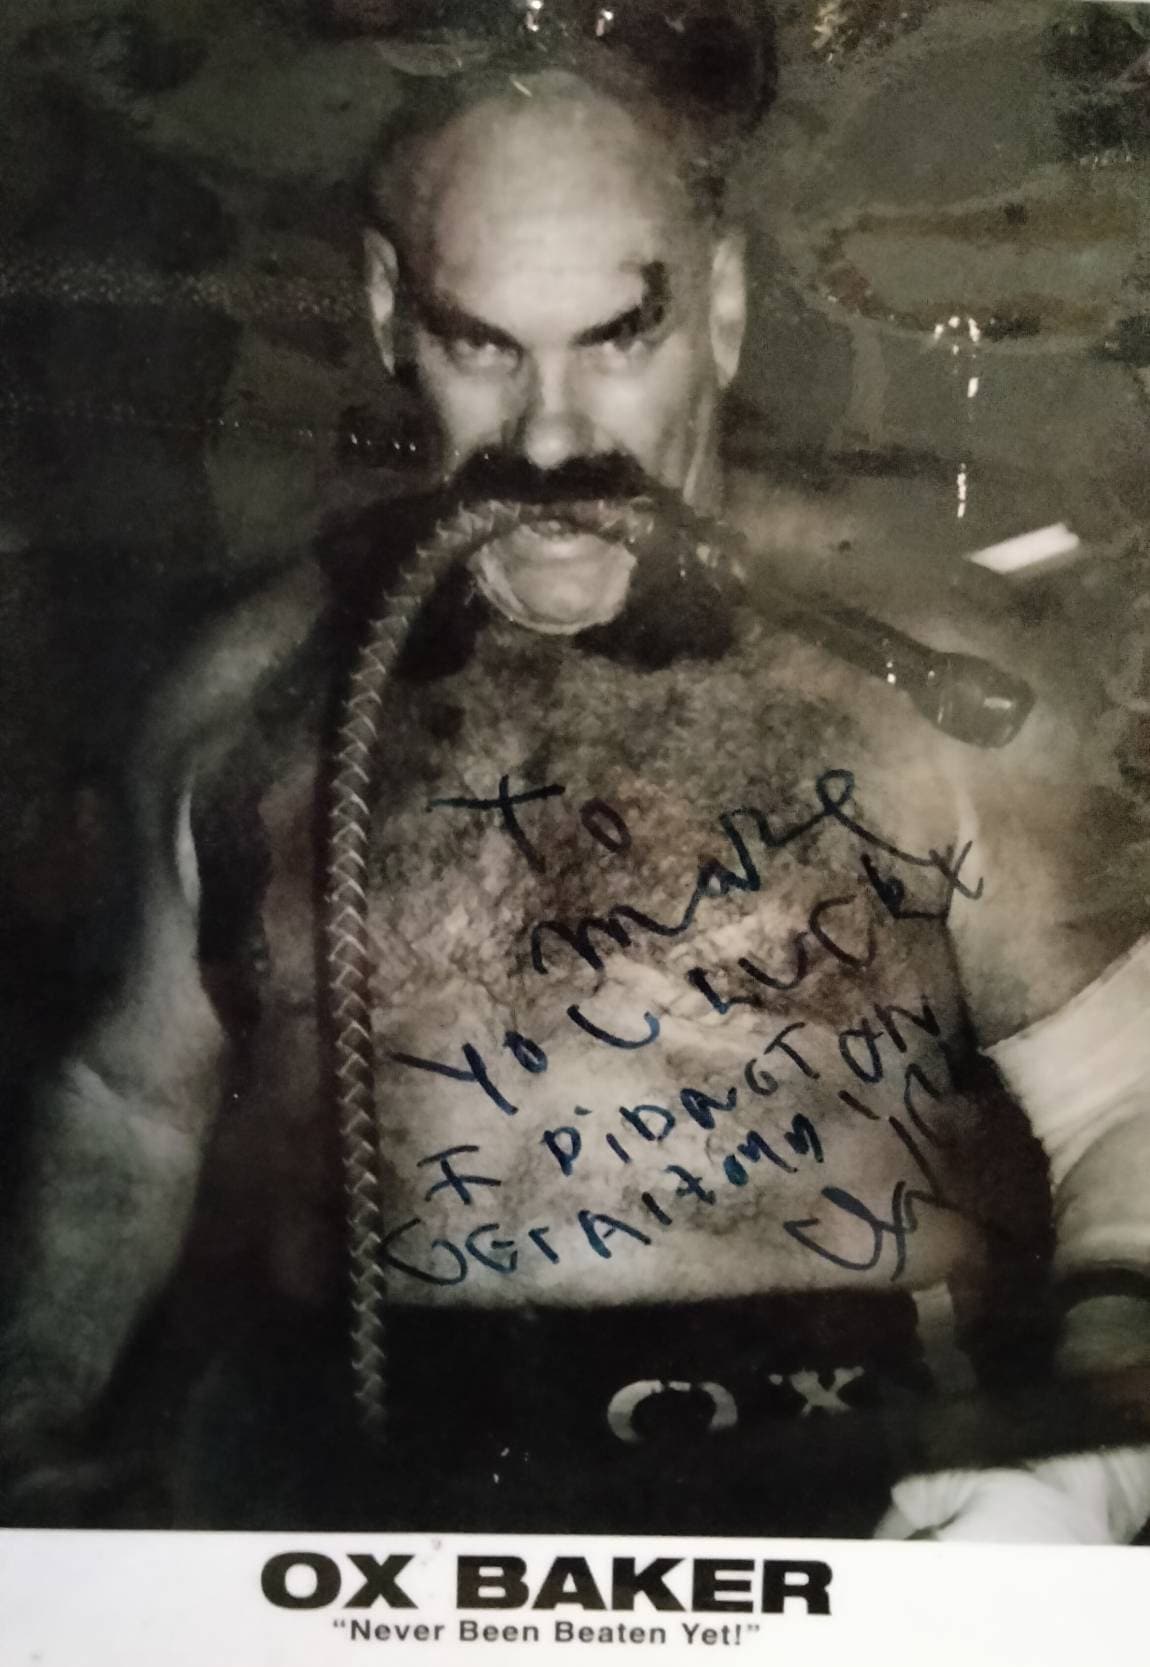 To
mark
YOU LUCKY
I DiDNOT
GET A
OX
OX BAKER
"Never Been Beaten Yet!"